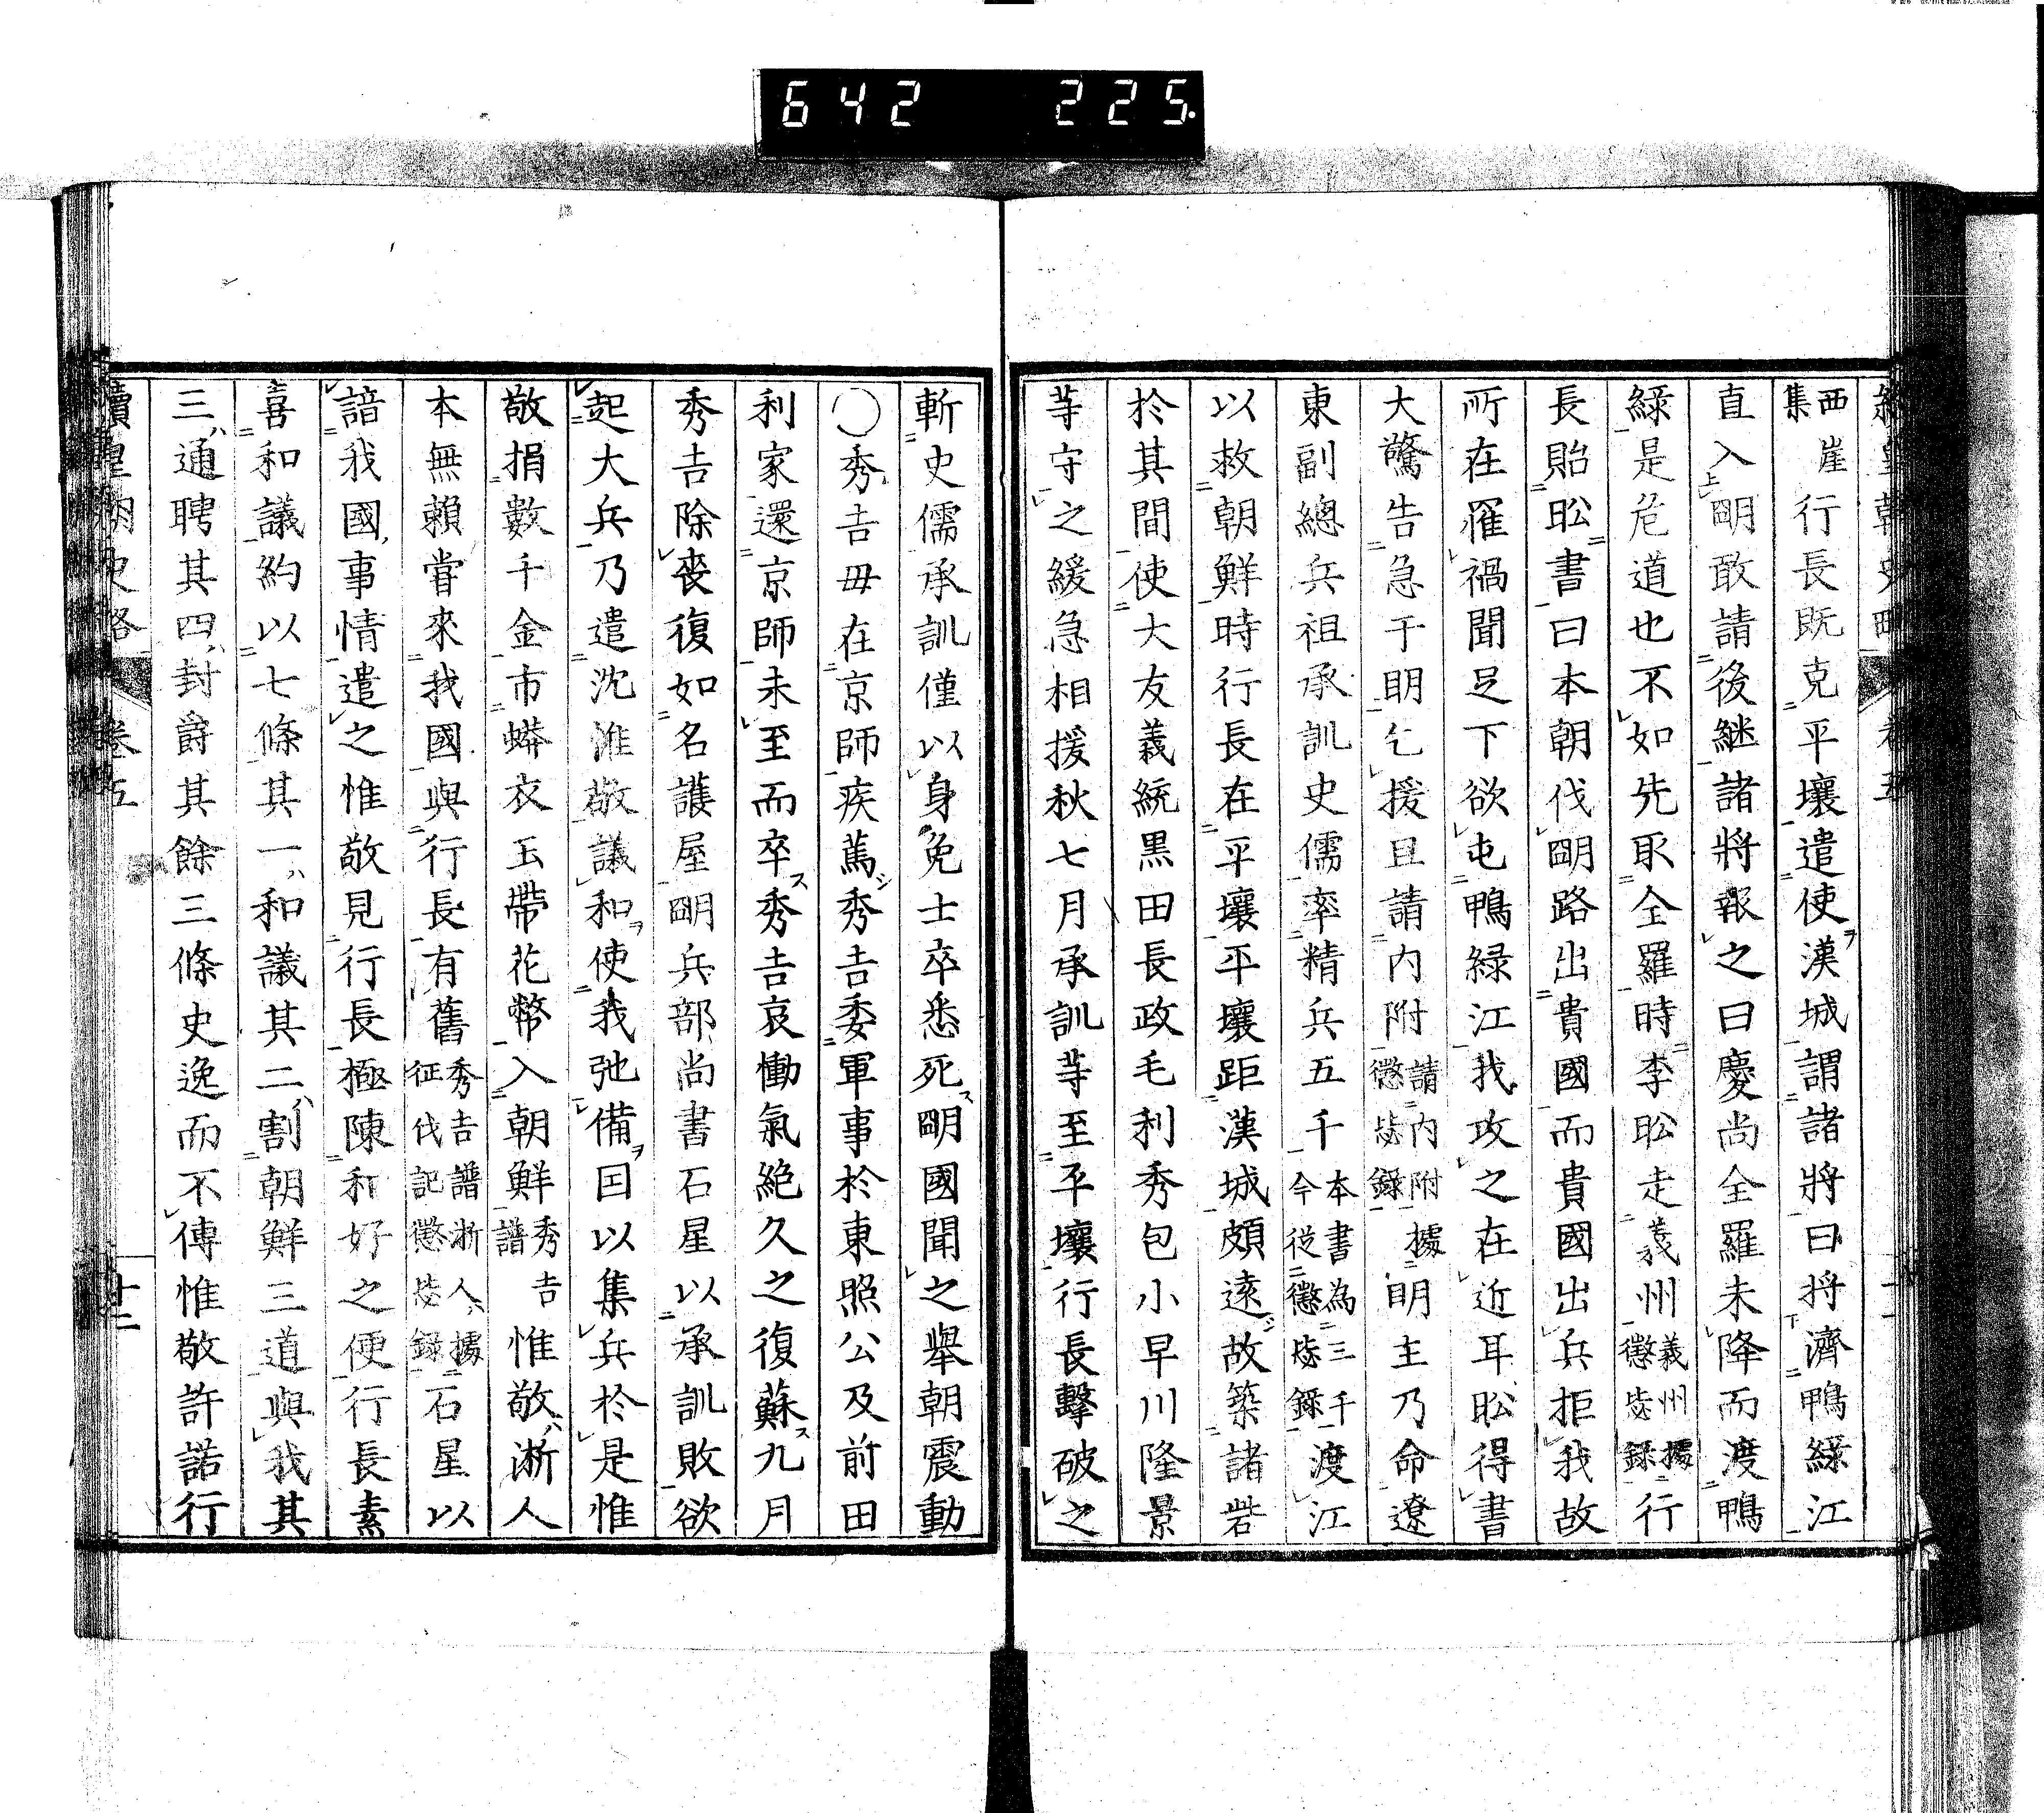 642 225.
西崖集行長既克平壤遣使漢城謂諸將曰將濟鴨綠江
直入明敢請後継諸將報之曰慶尚全羅未降而渡鴨
綠是危道也不如先取全羅時李昖走義州義州據懲毖録行
長貽昖書曰本朝伐明路出貴國而貴國出兵拒我故
所在罹禍聞足下欲屯鴨緑江我攻之在近耳昖得書
大驚告急于明乞援且請内附請内附據懲毖録明主乃命遼
東副總兵祖承訓史儒率精兵五千本書為三千今從懲毖録渡江
以救朝鮮時行長在平壤平壤距漢城頗遠故築諸砦
於其間使大友義統黒田長政毛利秀包小早川隆景
等守之緩急相援秋七月承訓等至平壤行長擊破之
斬史儒承訓僅以身免士卒悉死明國聞之舉朝震動
○秀吉毋在京師疾篤秀吉委軍事於東照公及前田
利家還京師未至而卒秀吉哀慟氣絶久之復蘇九月
秀吉除喪復如名護屋明兵部尚書石星以承訓敗欲
起大兵乃遣沈淮敬議和使我弛備因以集兵於是惟
敬捐數千金市蟒衣玉帶花幣入朝鮮秀吉譜惟敬淅人
本無賴甞來我國與行長有舊秀吉譜浙人據征伐記懲毖録石星以
諳我國事情遣之惟敬見行長極陳和好之便行長素
喜和議約以七條其一和議其二割朝鮮三道與我其
三通聘其四封爵其餘三條史逸而不傳惟敬許諾行
續皇朝史略 卷五 十二